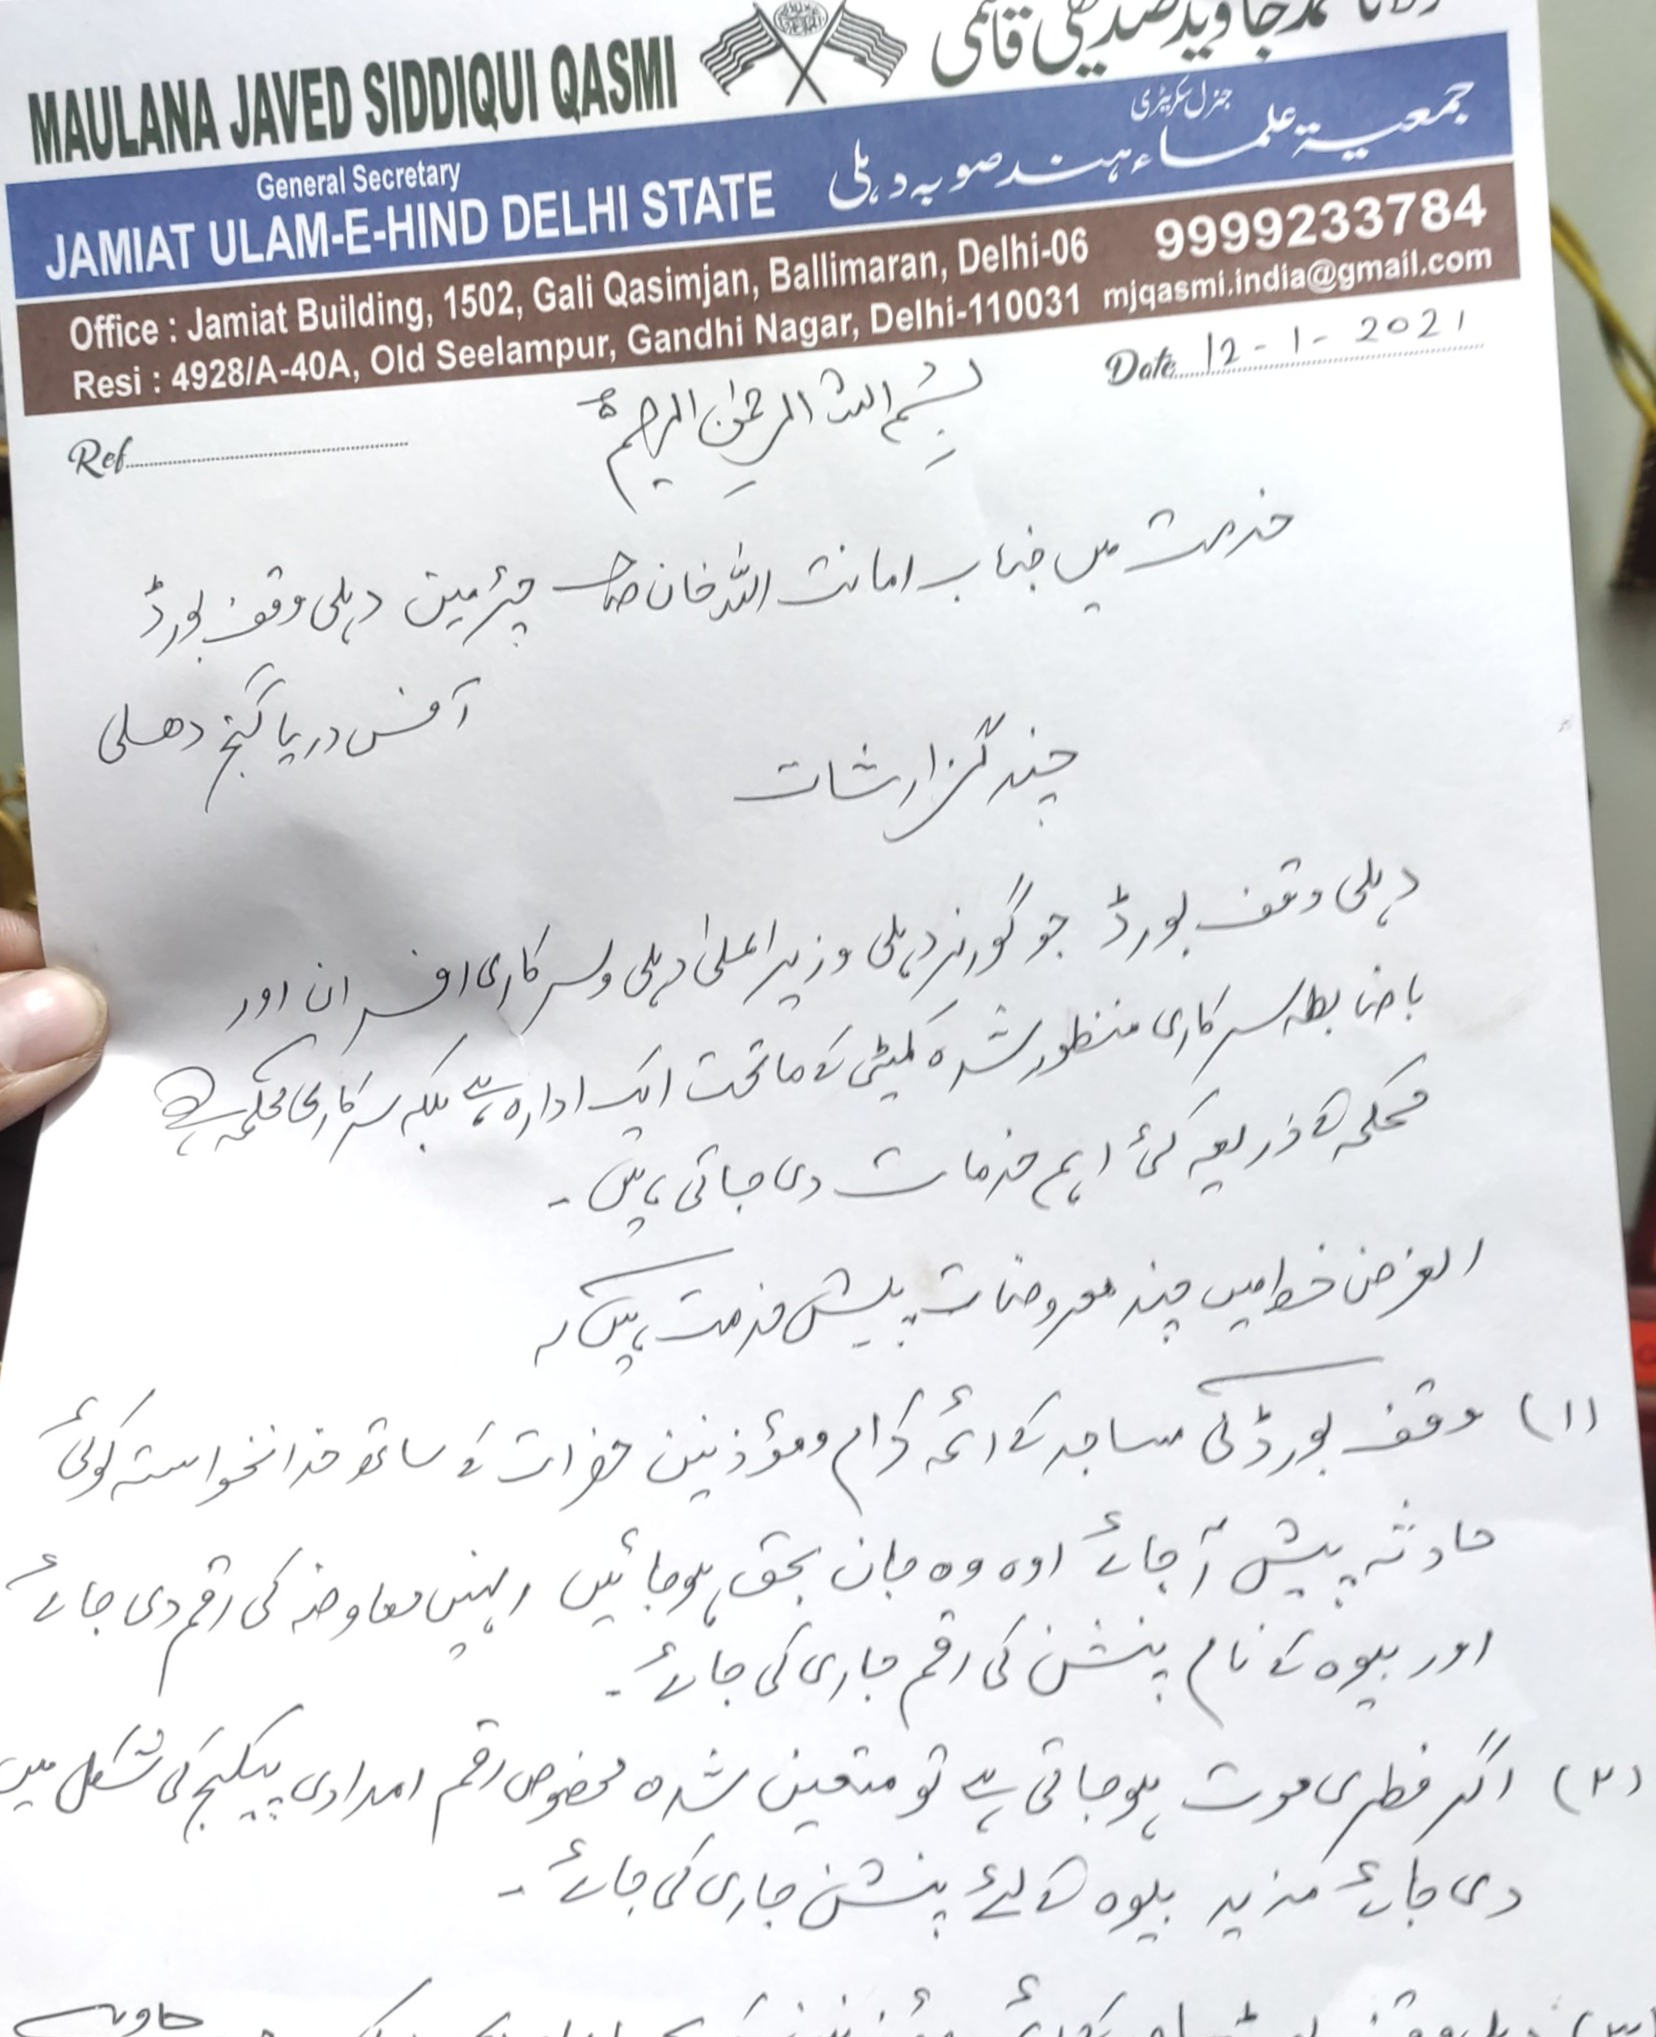 MAULANA JAVED SIDDIQUI QASMI
جاوید صدیقی قاسمی
General Secretary
جنرل سکریٹری
JAMIAT ULAM-E-HIND DELHI STATE
جمعیۃ علماء ہند صوبہ دہلی
Office : Jamiat Building, 1502, Gali Qasimjan, Ballimaran, Delhi-06
9999233784
Resi : 4928/A-40A, Old Seelampur, Gandhi Nagar, Delhi-110031
mjqasmi.india@gmail.com
Ref
Date 12-1-2021
بسم اللہ الرحمٰن الرحیم
خدمت میں جناب امانت اللہ خان صاحب چئرمین دہلی وقف بورڈ
آفس دریا گنج دھلی
چند گزارشات
دہلی وقف بورڈ جو گورنر دہلی وزیر اعلیٰ دہلی و سرکاری افسران اور
باضابطہ سرکاری منظور شدہ کمیٹی کے ماتحت ایک ادارہ ہے بلکہ سرکاری محکمہ ہے
محکمہ کے ذریعہ کئی اہم خدمات دی جاتی ہیں ۔
الغرض چند معروضات پیش خدمت ہیں
(۱) وقف بورڈ کی مساجد کے ائمہ کرام و مؤذنین حضرات کے ساتھ خدانخواستہ کوئی
حادثہ پیش آجائے اوہ وہ جان بحق ہوجائیں انہیں معاوضہ کی رقم دی جائے
اور بیوہ کے نام پنشن کی رقم جاری کی جائے ۔
(۲) اگر فطری موت ہوجاتی ہے تو متعین شدہ مخصوص رقم امدادی پیکیج کی شکل میں
دی جائے مزید بیوہ کے لئے پنشن جاری کی جائے ۔